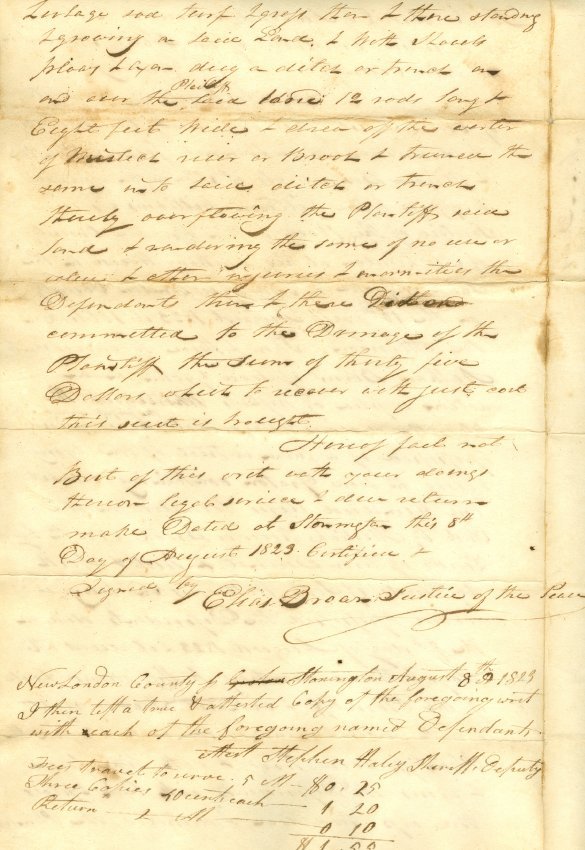 herbage sod turf & grass then & there standing
& growing on said Land, & with Shovels
plows & axes dug a ditch or trench on
Plaintiffs
and over the said land 12 rods long &
Eight feet Wide & drew off the water
of Mistick river or Brook & turned the
same into said ditch or trench
thereby overflowing the Plaintiffs said
land & rendering the same of no use or
value & other injuries & enormities the
Defendants then & there Did and
committed to the Damage of the
Plaintiff the Sum of thirty five
Dollars which to recover with just cost
this suit is brought
Hereof fail not
But of this writ with your doings
thereon legal service & due return
make Dated at Stonington this 8th
Day of August 1823 Certified &
Signed by
Elias Brown Justice of the Peace
New London County ss Groton Stonington August 8th 1823
I then left a true & attested Copy of the foregoing writ
with each of the foregoing named Defendants
Attest Stephen Haley Sheriffs Deputy
Fees travel to serve 5 M — $0 . 25
Three Copies 40 cents each — 1 20
Return — 2 M 0 10
$1 . 55